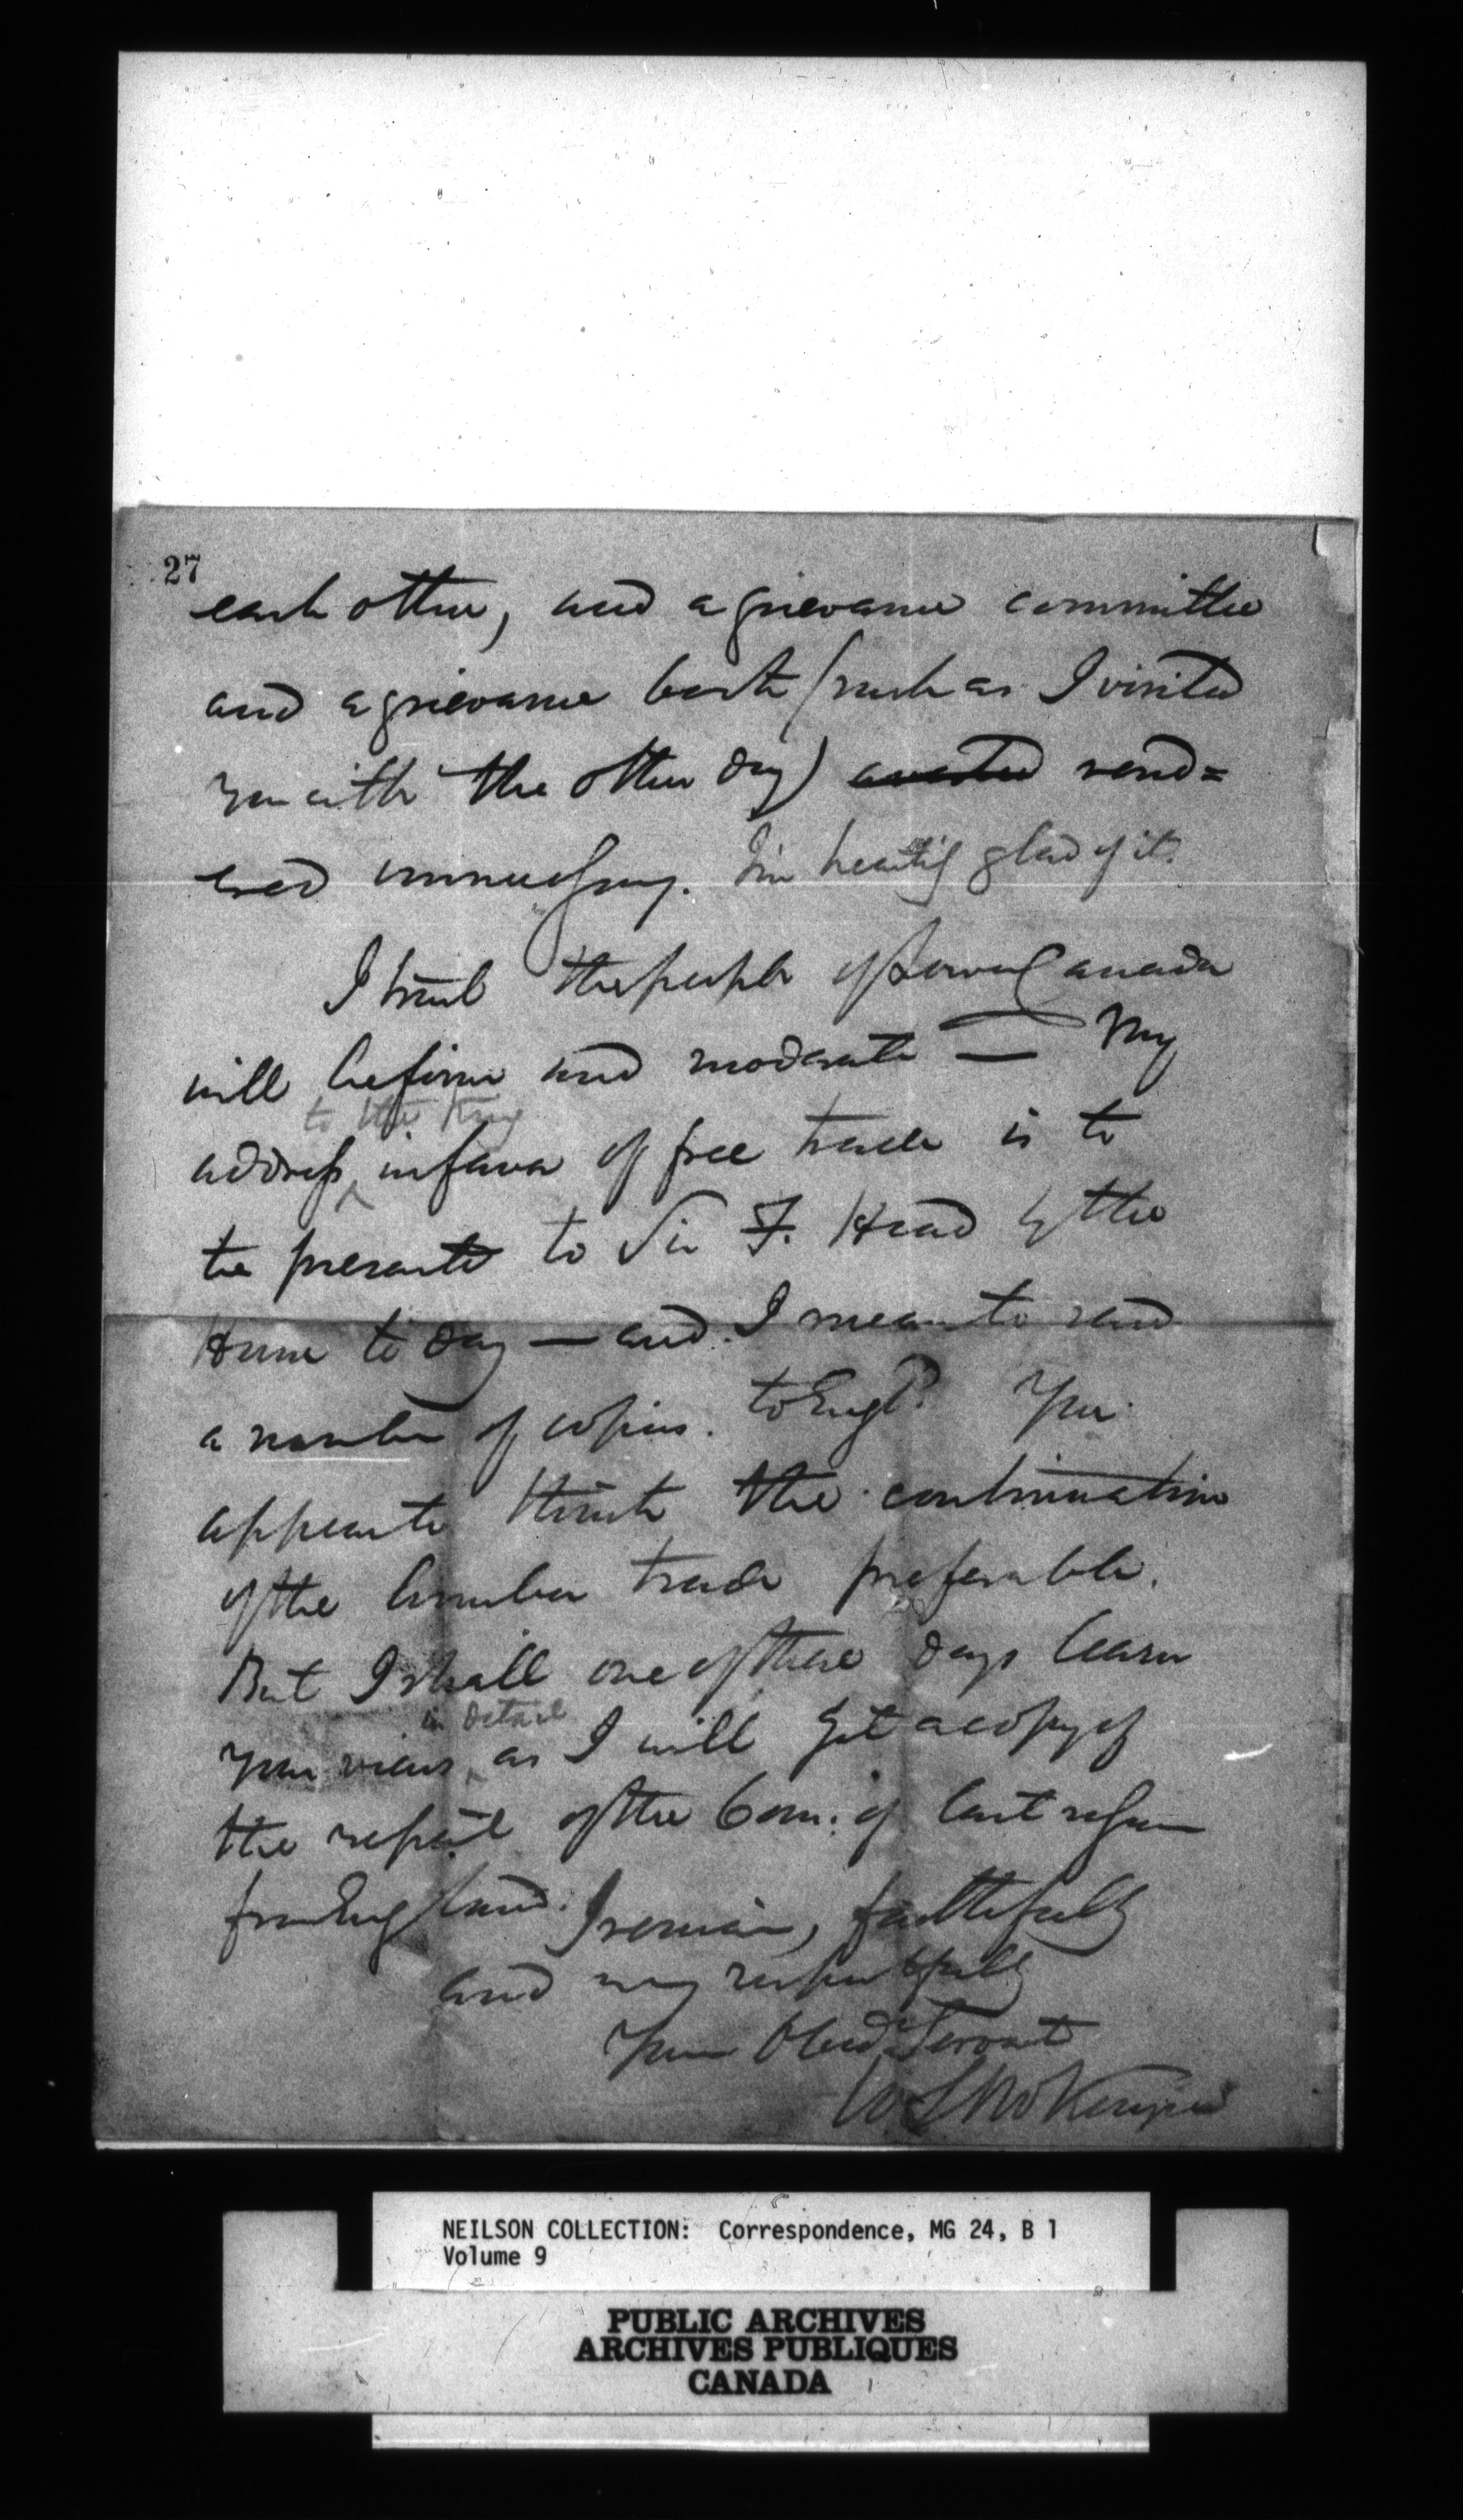 27
each other, and a grievance committee
and a grievance book (such as I visited
you with the other day) rend=
ered unnecessary. I'm heartily glad of it.
I trust the people of Lower Canada
will be firm and moderate — My
to the King
address in favor of free trade is to
be presented to Sir F. Head by the
House to day — and I mean to send
a number of copies to Engld. You
appear to think the continuation
of the lumber trade preferable.
But I shall one of these days learn
in detail
your views as I will get a copy of
the report of the Com: of last
from England. I remain, faithfully
and very respectfully
Your Obedt Servant
W L McKenzie
NEILSON COLLECTION: Correspondence, MG 24, B 1
Volume 9
PUBLIC ARCHIVES
ARCHIVES PUBLIQUES
CANADA